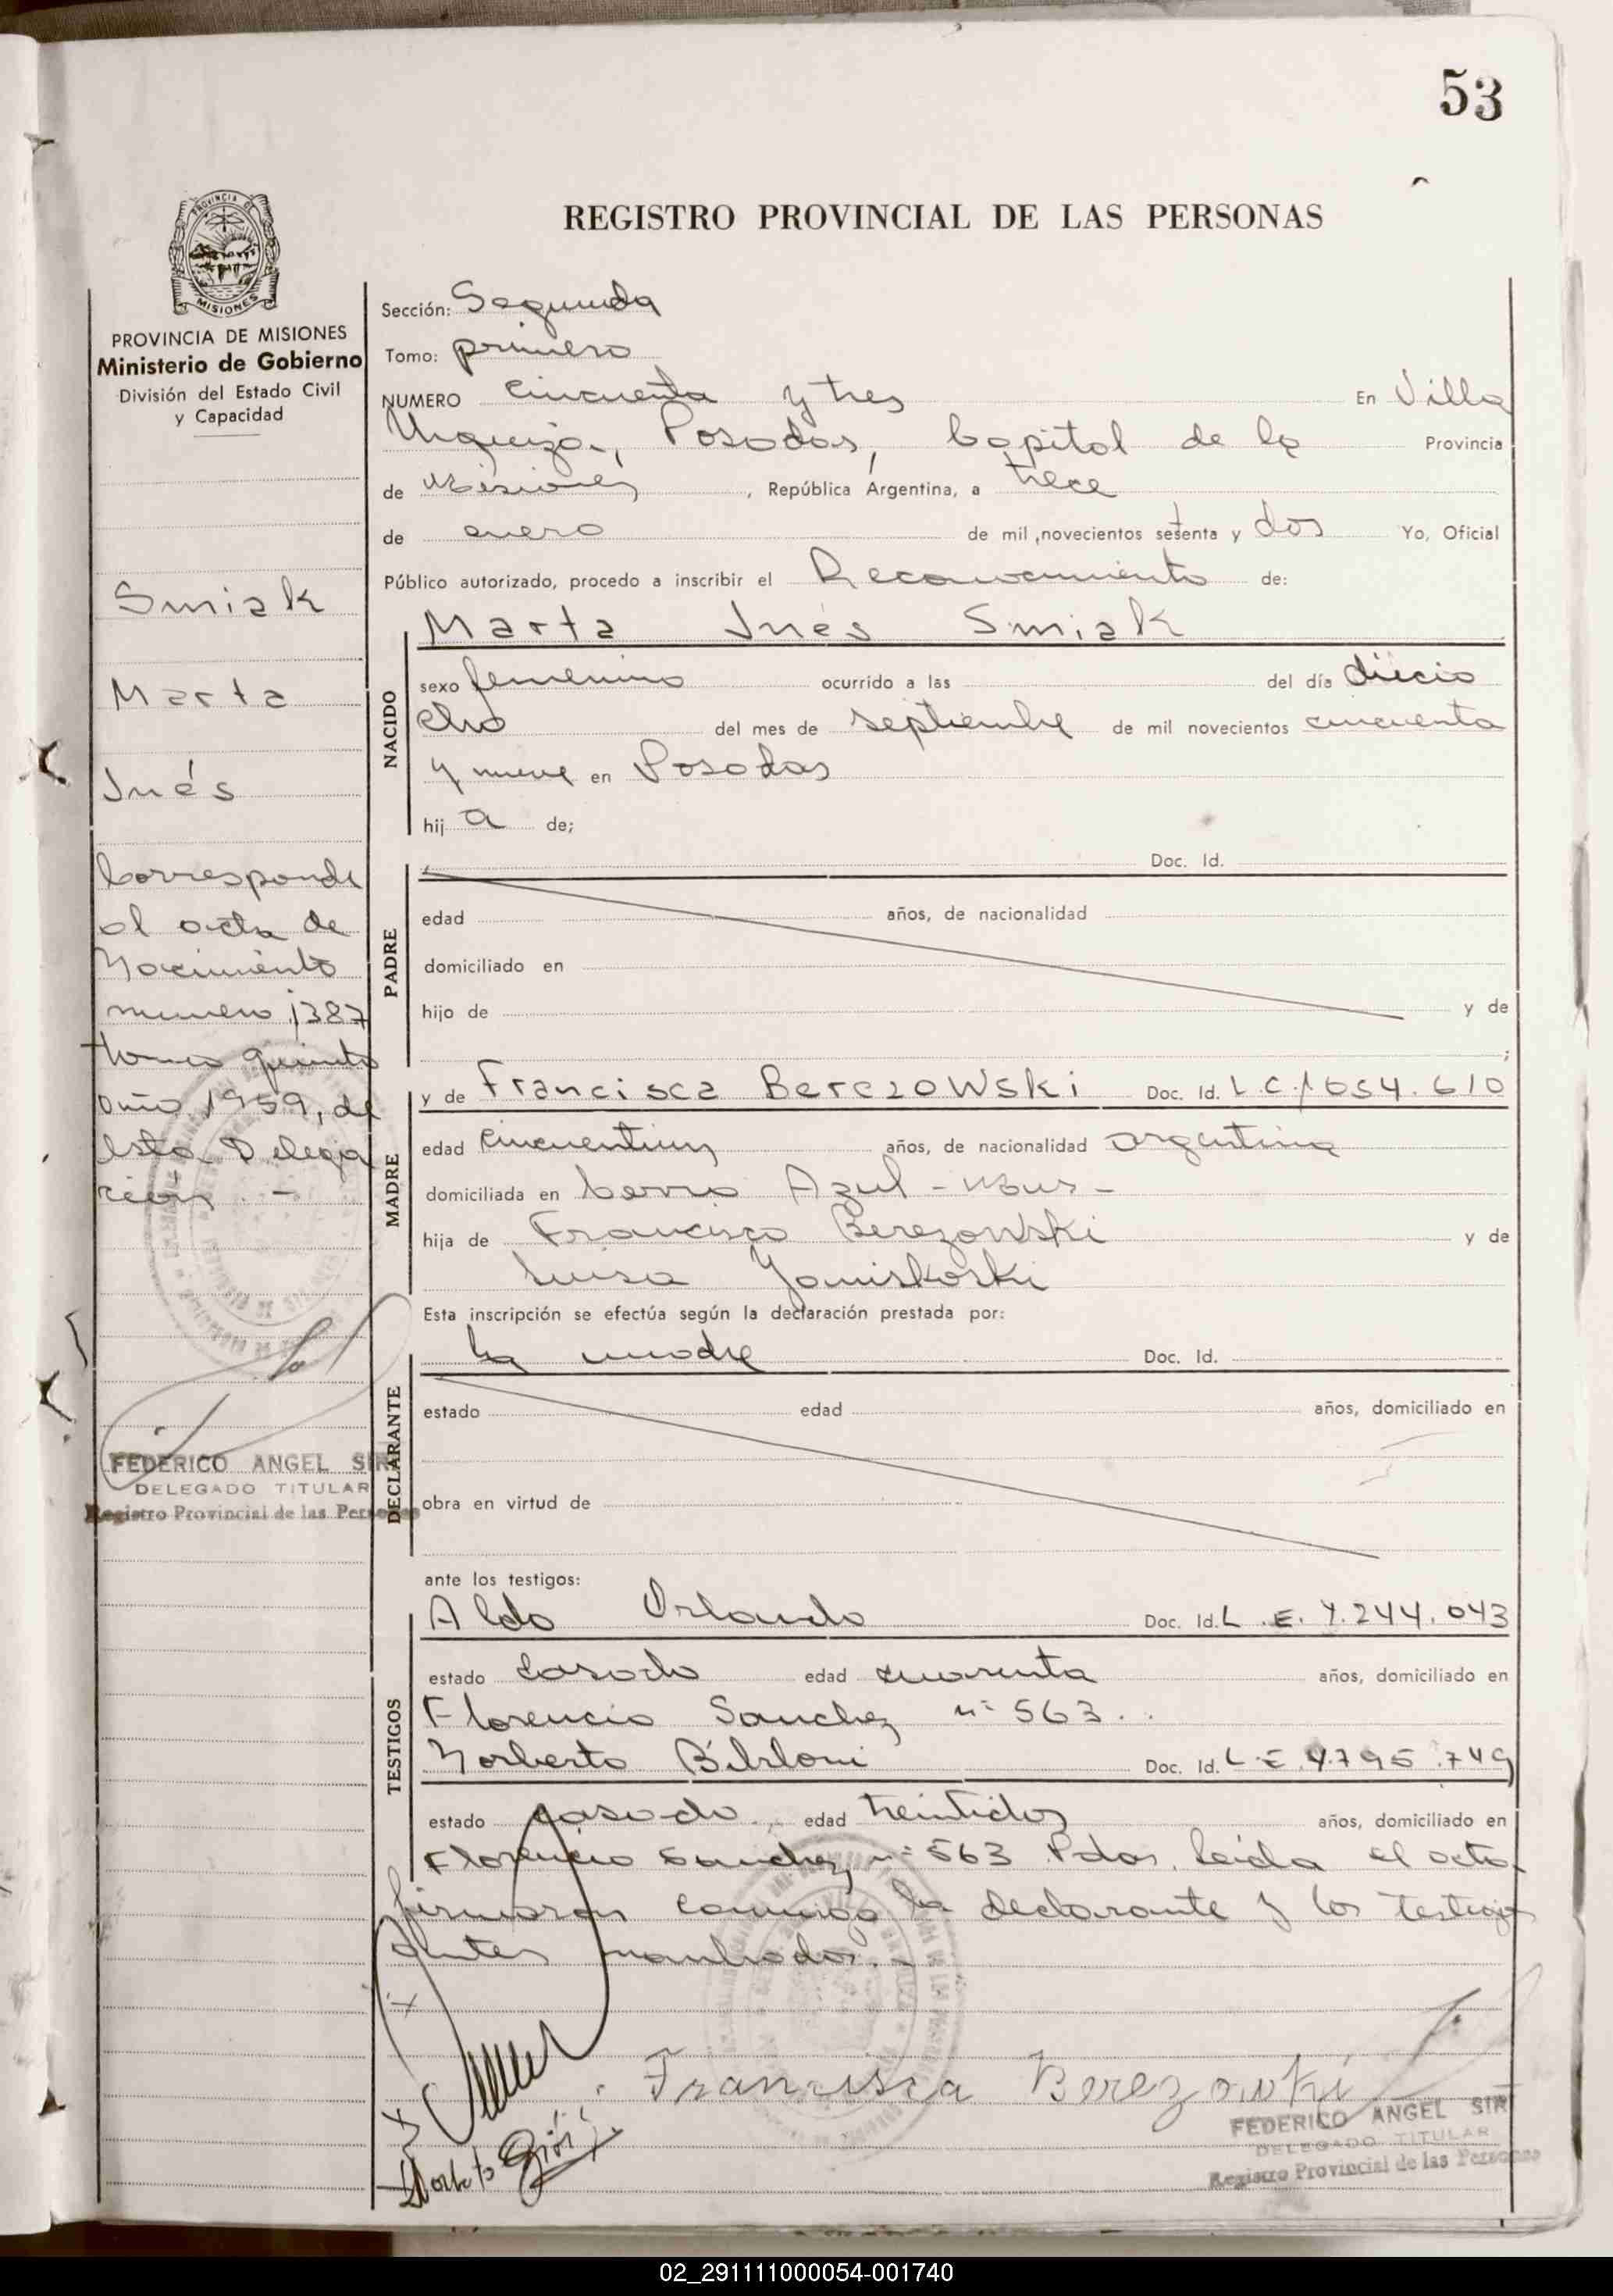 53
REGISTRO PROVINCIAL DE LAS PERSONAS
PROVINCIA DE
MISIONES
PROVINCIA DE MISIONES
Ministerio de Gobierno
División del Estado Civil
y Capacidad
Smiak
Marta
Inés
Corresponde
al acta de
Nacimiento
numero 1387
tomo quinto
año 1959, de
esta Delega
cion . -
FEDERICO ANGEL SIR
DELEGADO TITULAR
Registro Provincial de las Personas
Sección: Segunda
Tomo: primero
NUMERO cincuenta y tres En Villa
Urquiza, Posadas, Capital de la Provincia
de Misiones, República Argentina, a trece
de enero de mil novecientos setenta y dos Yo, Oficial
Público autorizado, procedo a inscribir el Reconocimiento de:
Marta Inés Smiak
NACIDO
sexo femenino ocurrido a las del día diecio
cho del mes de septiembre de mil novecientos cincuenta
y nueve en Posadas
hij a de;
Doc. Id.
PADRE
edad años, de nacionalidad
domiciliado en
hijo de y de
;
y de Francisca Berezowski Doc. Id. L.C. 1054.610
MADRE
edad años, de nacionalidad argentina
domiciliada en Cerro Azul - Mnes -
hija de Francisco Berezowski y de
Luisa
Esta inscripción se efectúa según la declaración prestada por:
la madre Doc. Id.
DECLARANTE
estado edad años, domiciliado en
obra en virtud de
ante los testigos:
Aldo Orlando Doc. Id. L.E. 7.244.043
TESTIGOS
estado casado edad cuarenta años, domiciliado en
Florencio Sanchez nº 563.
Norberto Doc. Id. L.E.
estado casado edad treintidos años, domiciliado en
Florencio Sanchez nº 563 Pdas. Leida el acta,
firmaron conmigo la declarante y los testigos
antes nombrados. -
Francisca Berezowski
FEDERICO ANGEL SIR
DELEGADO TITULAR
Registro Provincial de las Personas
02_291111000054-001740